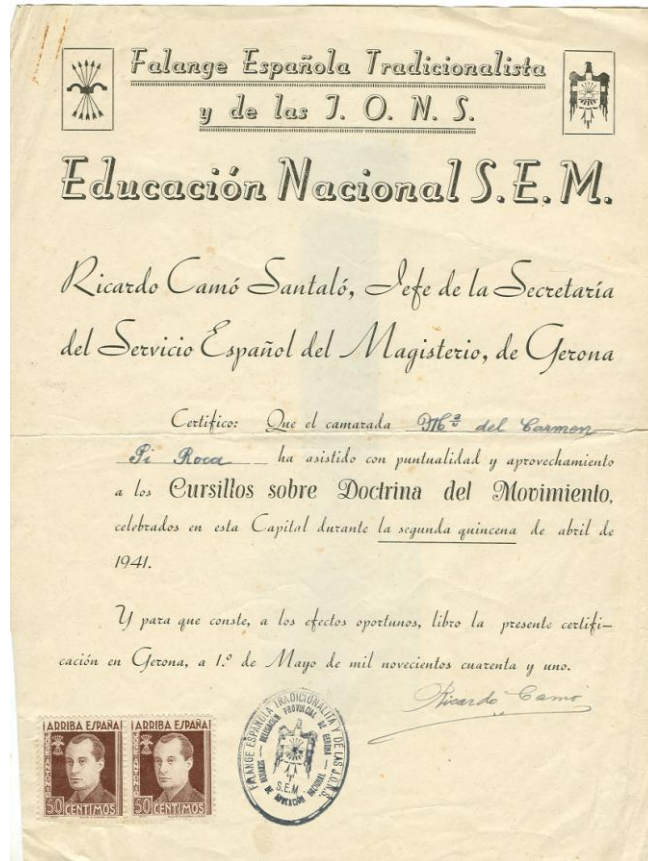 Falange Española Tradicionalista
y de las J. O. N. S.
Educación Nacional S.E.M.
Ricardo Camó Santaló, Jefe de la Secretaría
del Servicio Español del Magisterio, de Gerona
Certifico: Que el camarada Mª del Carmen
Pi Roca ha asistido con puntualidad y aprovechamiento
a los Cursillos sobre Doctrina del Movimiento,
celebrados en esta Capital durante la segunda quincena de abril de
1941.
Y para que conste, a los efectos oportunos, libro la presente certifi-
cación en Gerona, a 1.º de Mayo de mil novecientos cuarenta y uno.
Ricardo Camó
¡ARRIBA ESPAÑA! ¡ARRIBA ESPAÑA!
50 CENTIMOS 50 CENTIMOS
FALANGE ESPAÑOLA TRADICIONALISTA Y DE LAS J.O.N.S.
DELEGACIÓN PROVINCIAL
GERONA
S.E.M.
DE EDUCACIÓN NACIONAL